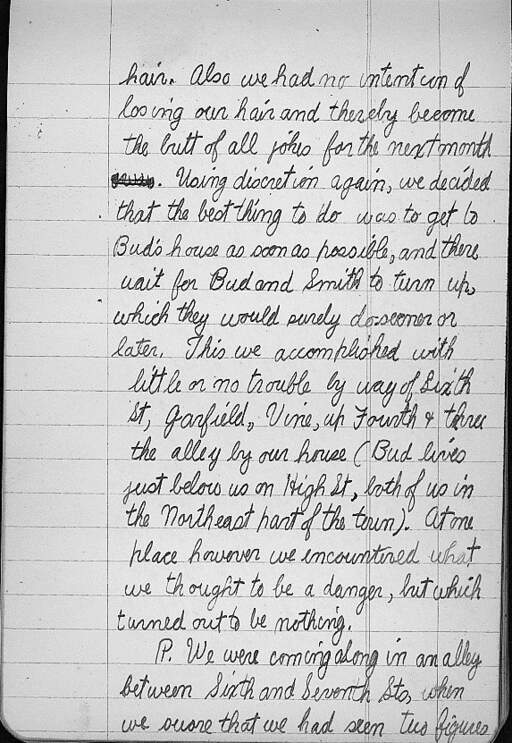 hair. Also we had no intention of
losing our hair and thereby become
the butt of all jokes for the next month
. Using discretion again, we decided
that the best thing to do was to get to
Bud's house as soon as possible, and there
wait for Bud and Smith to turn up,
which they would surely do sooner or
later. This we accomplished with
little or no trouble by way of Sixth
St, Garfield, Vine, up Fourth & thru
the alley by our house (Bud lives
just below us on High St, both of us in
the Northeast part of the town). At one
place however we encountered what
we thought to be a danger, but which
turned out to be nothing.
P. We were coming along in an alley
between Sixth and Seventh Sts, when
we swore that we had seen two figures